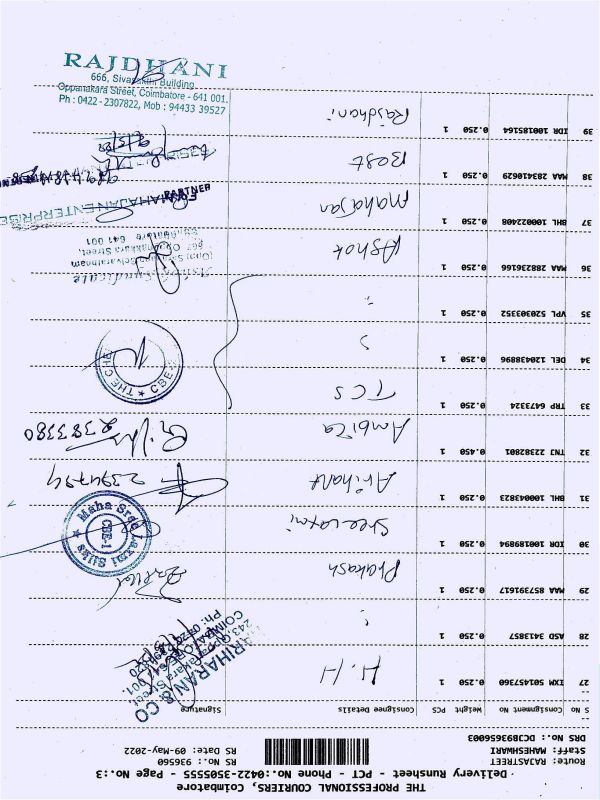 THE PROFESSIONAL COURIERS, Coimbatore
Delivery Runsheet - PCT - Phone No.:0422-3505555 - Page No.:3
Route: RAJASTREET
Staff: MAHESHWARI
DRS No.: DCJB93656003
RS No.: 936560
RS Date: 09-May-2022
S No Consignment No Weight PCS Consignee Details Signature
27 IXM 501457360 0.250 1 H.H
HARIHARAN & CO
28 ASD 3413857 0.250 1 "
29 MAA 857391617 0.250 1 Prakash
30 IDR 100189894 0.250 1 Sree Laxmi
Maha Sree Laxmi Silks
CBE-1
31 BHL 100043823 0.250 1 Arihant 2394794
32 TNJ 22382801 0.450 1 Ambica 2383380
33 TRP 6473324 0.250 1 TCS
34 DEL 120438896 0.250 1 "
35 VPL 520303352 0.250 1 "
36 MAA 288236166 0.250 1 Ashok
Oppanakkara Street,
Coimbatore 641 001
37 BHL 100022408 0.250 1 Mahajan
For MAHAJAN ENTERPRISE
PARTNER
38 MAA 283410629 0.250 1 Best
39 IDR 100185164 0.250 1 Rajdhani
RAJDHANI
666, Sivasakthi Building
Oppanakara Street, Coimbatore - 641 001.
Ph : 0422 - 2307822, Mob : 94433 39527